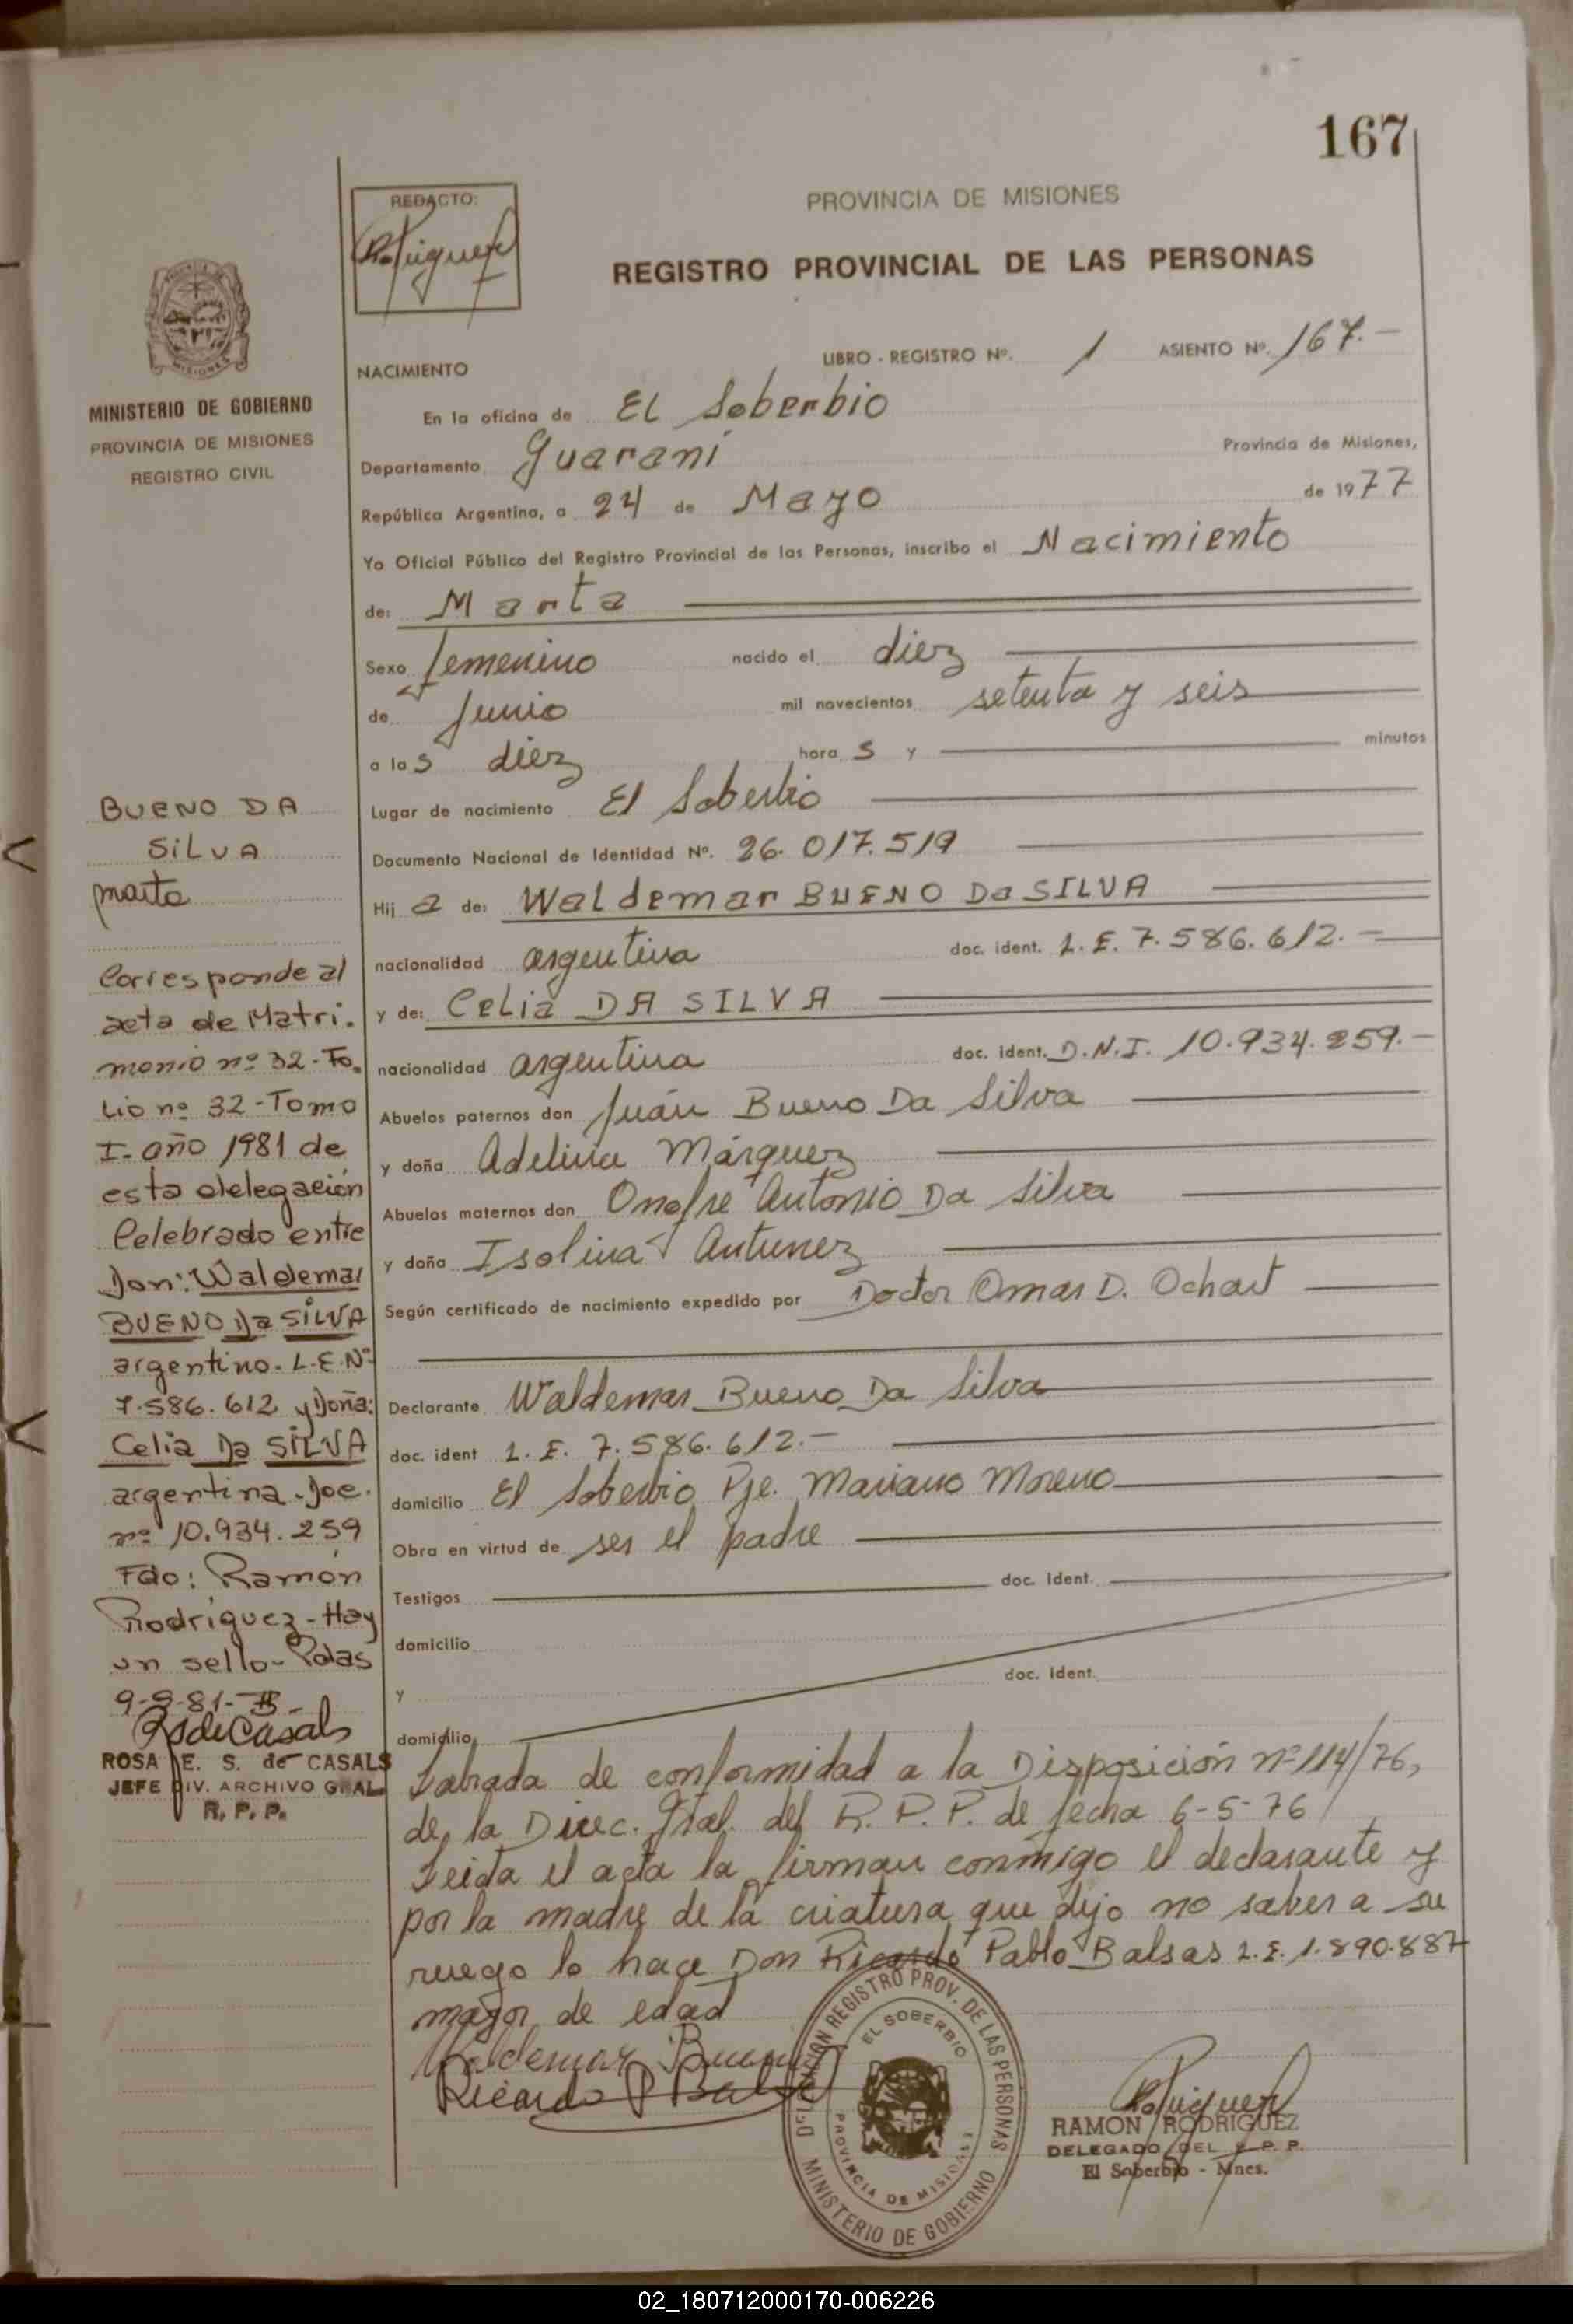 167
PROVINCIA DE MISIONES
REGISTRO PROVINCIAL DE LAS PERSONAS
REDACTO:
MISIONES
MINISTERIO DE GOBIERNO
PROVINCIA DE MISIONES
REGISTRO CIVIL
NACIMIENTO LIBRO - REGISTRO Nº. 1 ASIENTO Nº. 167.-
En la oficina de El Soberbio
Departamento Guaraní Provincia de Misiones,
República Argentina, a 24 de Mayo de 1977
Yo Oficial Público del Registro Provincial de las Personas, inscribo el Nacimiento
de: Marta
Sexo femenino nacido el diez
de Junio mil novecientos setenta y seis
a las diez horas y minutos
Lugar de nacimiento El Soberbio
Documento Nacional de Identidad Nº. 26.017.519
Hija de: Waldemar BUENO Da SILVA
nacionalidad argentina doc. ident. L.E. 7.586.612.-
y de: Celia DA SILVA
nacionalidad argentina doc. ident. D.N.I. 10.934.259.-
Abuelos paternos don Juán Bueno Da Silva
y doña Adelina Márquez
Abuelos maternos don Onofre Antonio Da Silva
y doña Isolina Antunez
Según certificado de nacimiento expedido por Doctor Omar D. Ochart
Declarante Waldemar Bueno Da Silva
doc. ident L.E. 7.586.612.-
domicilio El Soberbio Pje. Mariano Moreno
Obra en virtud de ser el padre
Testigos doc. Ident.
domicilio
y doc. Ident.
domicilio
Labrada de conformidad a la Disposición nº 114/76,
de la Direc. Gral. del R.P.P. de fecha 6-5-76
Leida el acta la firman conmigo el declarante y
por la madre de la criatura que dijo no saber a su
ruego lo hace Don Ricardo Pablo Balsas L.E. 1.890.887
mayor de edad
Waldemar Bueno
Ricardo P Balsas
DELEGACION REGISTRO PROV. DE LAS PERSONAS
EL SOBERBIO
PROVINCIA DE MISIONES
MINISTERIO DE GOBIERNO
RAMON RODRIGUEZ
DELEGADO DEL R. P. P.
El Soberbio - Mnes.
BUENO DA
SILVA
Marta
Corresponde al
acta de Matri.
monio nº 32-Fo.
lio nº 32-Tomo
I-año 1981 de
esta delegación
Celebrado entre
Don: Waldemar
BUENO Da SILVA
argentino. L.E.Nº
7.586.612 y Doña:
Celia Da SILVA
argentina-Doc.
nº 10.934.259
Fdo: Ramón
Rodríguez-Hay
un sello-Pdas
9-9-81-
RsdeCasals
ROSA E. S. de CASALS
JEFE DIV. ARCHIVO GRAL.
R. P. P.
02_180712000170-006226